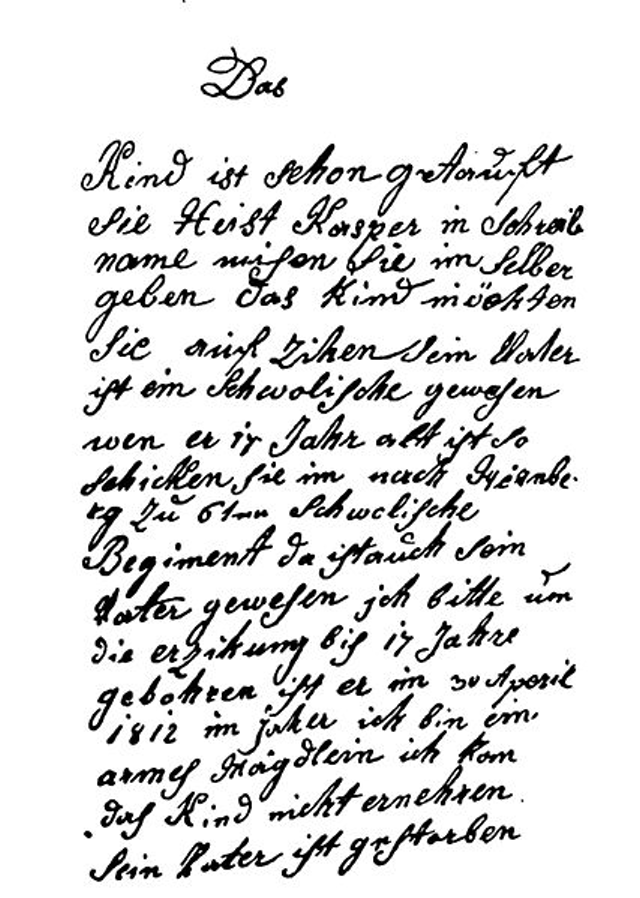 Das
Kind ist schon getauft
Sie Heist Kasper in Schreib
name misen Sie im selber
geben das Kind möchten
Sie auf ziken Sein Vater
ist ein Schwolische gewesen
wen er 17 Jahr alt ist so
schicken Sie im nach Nirnbe
rg zu 6ten Schwolische
Begiment da ist auch sein
Vater gewesen ich bitte um
die erzikung bis 17 Jahre
gebohren ist er im 30 Aperil
1812 im Jaher ich bin ein
armes Mägdlein ich kan
das Kind nicht ernehren
Sein Vater ist gestorben